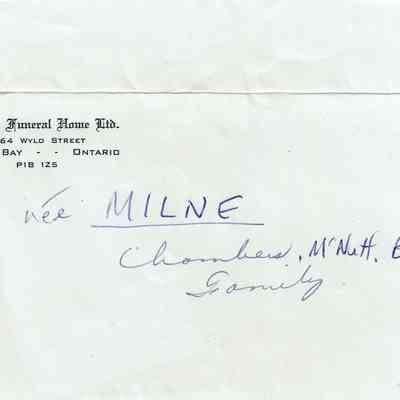 Funeral Home Ltd.
64 WYLD STREET
BAY - - ONTARIO
P1B 1Z5
née MILNE
Chambers, McNutt, B
Family